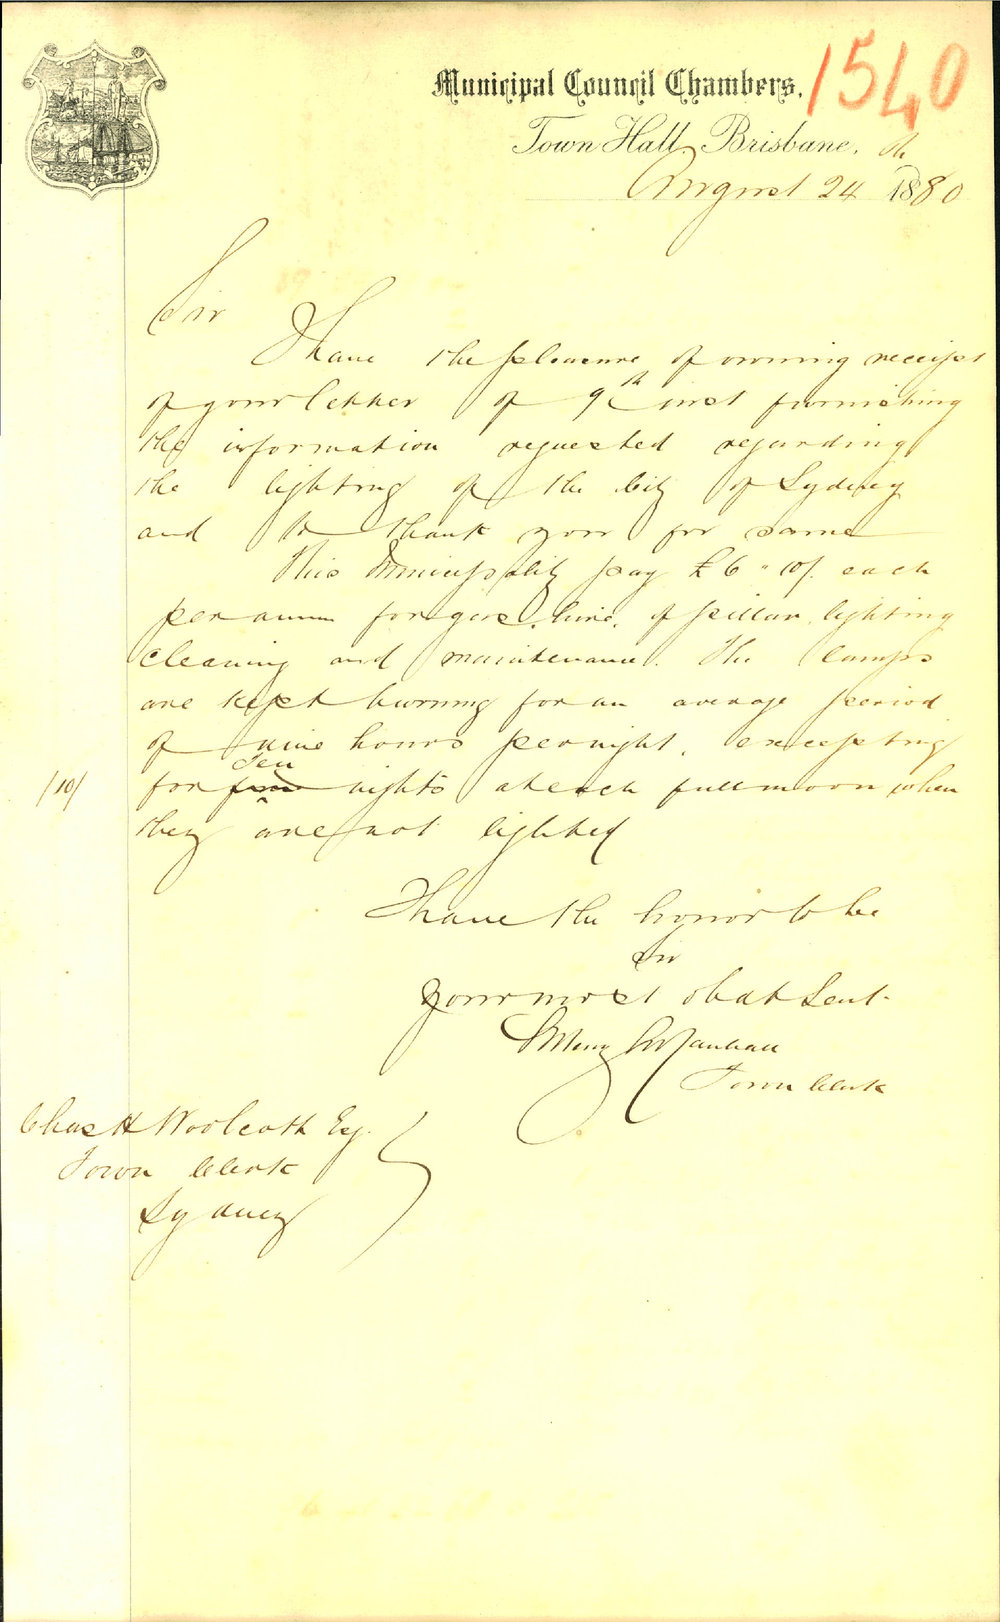 Municipal Council Chambers,
1540
Town Hall, Brisbane,
August 24th 1880
Sir
I have the pleasure of owning receipt
of your letter of 9th inst furnishing
the information requested regarding
the lighting of the City of Sydney
and to thank you for same
This Municipality pay £6 " 10/. each
per annum for gas, hire, of pillar, lighting
cleaning and maintenance. The lamps
are kept burning for an average period
of nine hours per night, excepting
/10/ for four ten nights at each full moon when
they are not lighted
I have the honor to be
Sir
your most obdt Servt.
Henry Marshall
Town Clerk
Chas H Woolcott Esq.
Town Clerk
Sydney